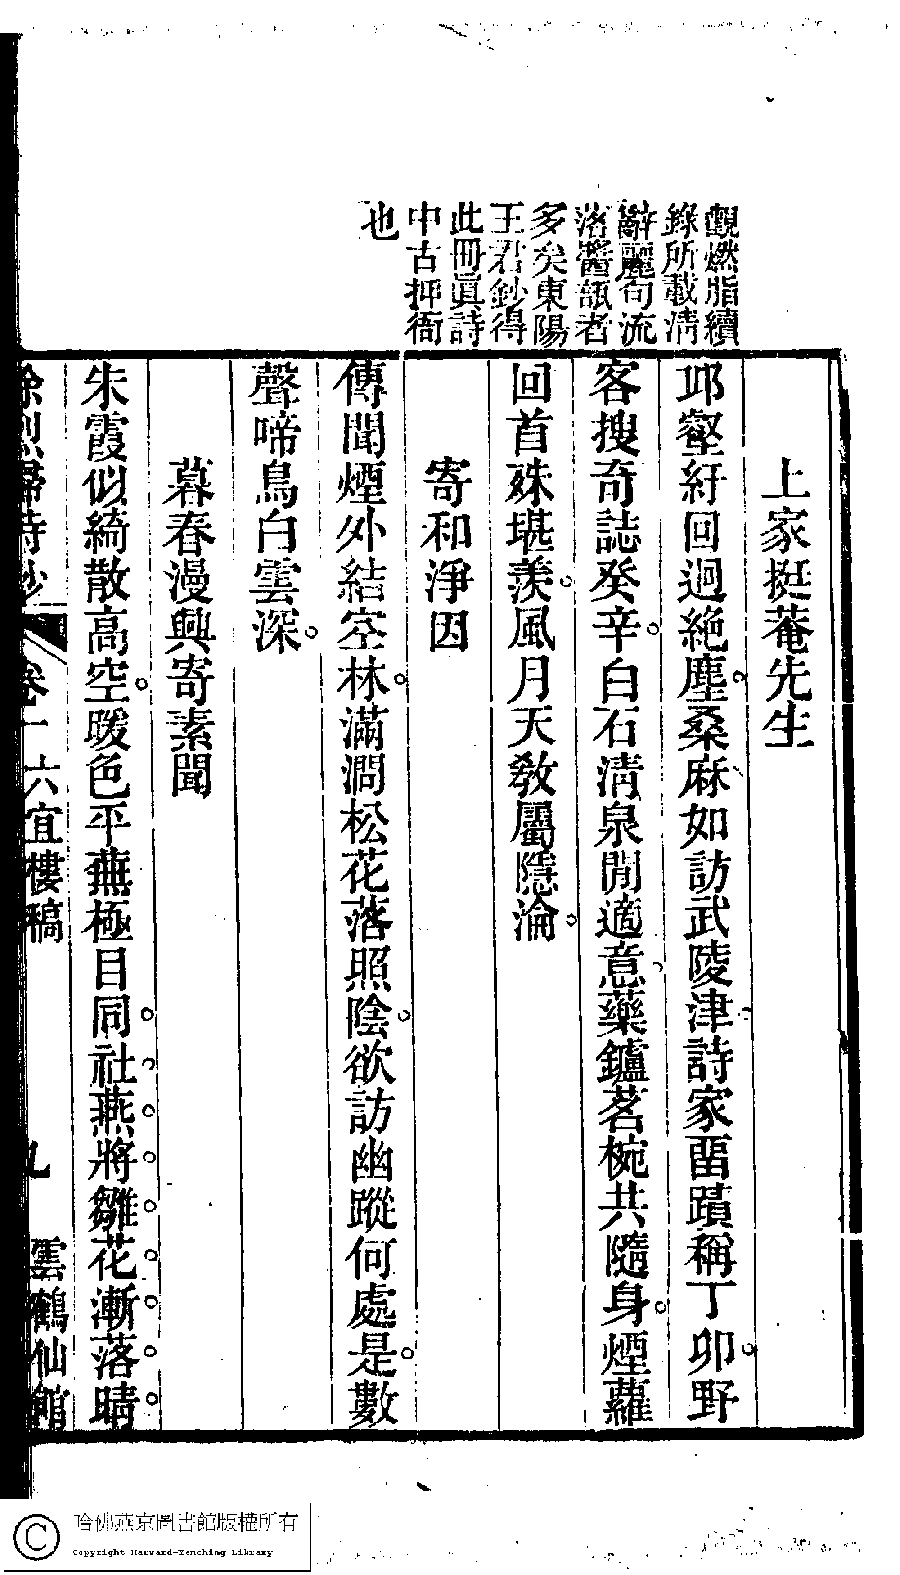 觀燃脂續
錄所載淸
辭麗句流
落醬瓿者
多矣東陽
王君鈔得
此冊眞詩
中古押衙
也
上家挺菴先生
邛壑紆回迥絶塵桑麻如訪武陵津詩家畱蹟稱丁卯野
客搜奇誌癸辛白石淸泉閒適意藥鑪茗椀共隨身煙蘿
回首殊堪羨風月天敎屬隱淪
寄和淨因
傳聞煙外結空林滿澗松花落照陰欲訪幽蹤何處是數
聲啼鳥白雲深
暮春漫興寄素聞
朱霞似綺散高空暖色平蕪極目同社燕將雛花漸落晴
徐烈婦詩鈔 卷一 六宜樓稿 九 雲鶴仙館
哈佛燕京圖書館版權所有
Copyright Harvard-Yenching Library